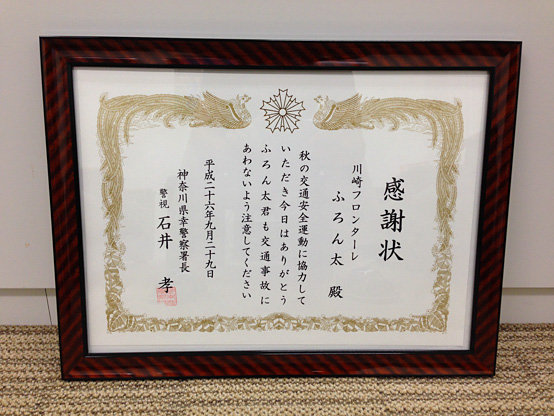 感謝状
川崎フロンターレ
ふろん太 殿
秋の交通安全運動に協力して
いただき今日はありがとう
ふろん太君も交通事故に
あわないよう注意してください
平成二十六年九月二十九日
神奈川県幸警察署長
警視 石井 孝